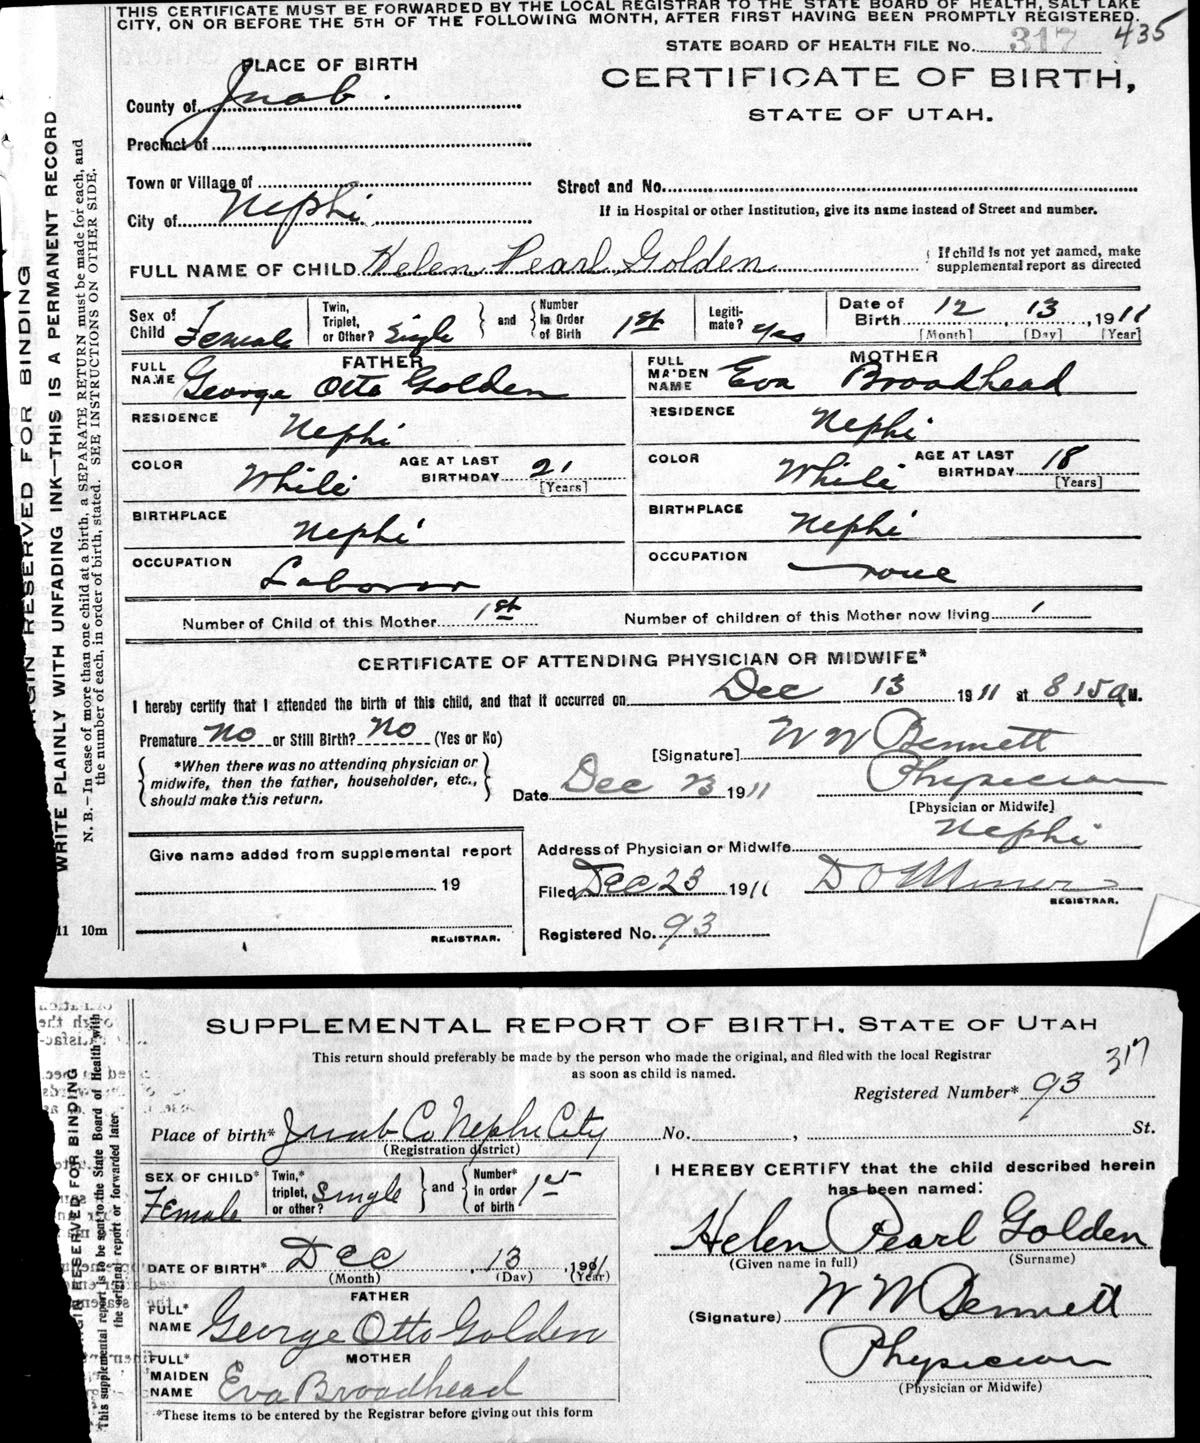 THIS CERTIFICATE MUST BE FORWARDED BY THE LOCAL REGISTRAR TO THE STATE BOARD OF HEALTH, SALT LAKE
CITY, ON OR BEFORE THE 5TH OF THE FOLLOWING MONTH, AFTER FIRST HAVING BEEN PROMPTLY REGISTERED.
STATE BOARD OF HEALTH FILE No. 317 435
PLACE OF BIRTH
CERTIFICATE OF BIRTH,
STATE OF UTAH.
County of Juab.
Precinct of
Town or Village of
Street and No.
City of Nephi
If in Hospital or other Institution, give its name instead of Street and number.
FULL NAME OF CHILD Helen Pearl Golden
If child is not yet named, make
supplemental report as directed
Sex of Child Female
Twin, Triplet, or Other? Single and Number in Order of Birth 1st
Legitimate? yes
Date of Birth 12 13, 1911
[Month] [Day] [Year]
FATHER
FULL NAME George Otto Golden
RESIDENCE Nephi
COLOR White AGE AT LAST BIRTHDAY 21 [Years]
BIRTHPLACE Nephi
OCCUPATION Laborer
MOTHER
FULL MAIDEN NAME Eva Broadhead
RESIDENCE Nephi
COLOR White AGE AT LAST BIRTHDAY 18 [Years]
BIRTHPLACE Nephi
OCCUPATION none
Number of Child of this Mother 1st Number of children of this Mother now living 1
CERTIFICATE OF ATTENDING PHYSICIAN OR MIDWIFE*
I hereby certify that I attended the birth of this child, and that it occurred on Dec 13 1911 at 8 15 a M.
Premature No or Still Birth? No (Yes or No)
[Signature] W W Bennett
*When there was no attending physician or
midwife, then the father, householder, etc.,
should make this return.
Date Dec 23 1911 Physician
[Physician or Midwife]
Give name added from supplemental report
19
REGISTRAR.
Address of Physician or Midwife Nephi
Filed Dec 23 1911 D O Miner
REGISTRAR.
Registered No. 93
11 10m
MARGIN RESERVED FOR BINDING
WRITE PLAINLY WITH UNFADING INK—THIS IS A PERMANENT RECORD
N. B.—In case of more than one child at a birth, a SEPARATE RETURN must be made for each, and
the number of each, in order of birth, stated. SEE INSTRUCTIONS ON OTHER SIDE.
SUPPLEMENTAL REPORT OF BIRTH. STATE OF UTAH
This return should preferably be made by the person who made the original, and filed with the local Registrar
as soon as child is named.
317
Registered Number* 93
Place of birth* Juab Co Nephi City No. , St.
(Registration district)
SEX OF CHILD* Female
Twin,* triplet, or other? Single and Number* in order of birth 1st
DATE OF BIRTH* Dec 13, 1911
(Month) (Day) (Year)
FATHER
FULL* NAME George Otto Golden
MOTHER
FULL* MAIDEN NAME Eva Broadhead
*These items to be entered by the Registrar before giving out this form
I HEREBY CERTIFY that the child described herein
has been named:
Helen Pearl Golden
(Given name in full) (Surname)
(Signature) W W Bennett
Physician
(Physician or Midwife)
RESERVED FOR BINDING
This supplemental report is to be sent to the State Board of Health with
the original report or forwarded later